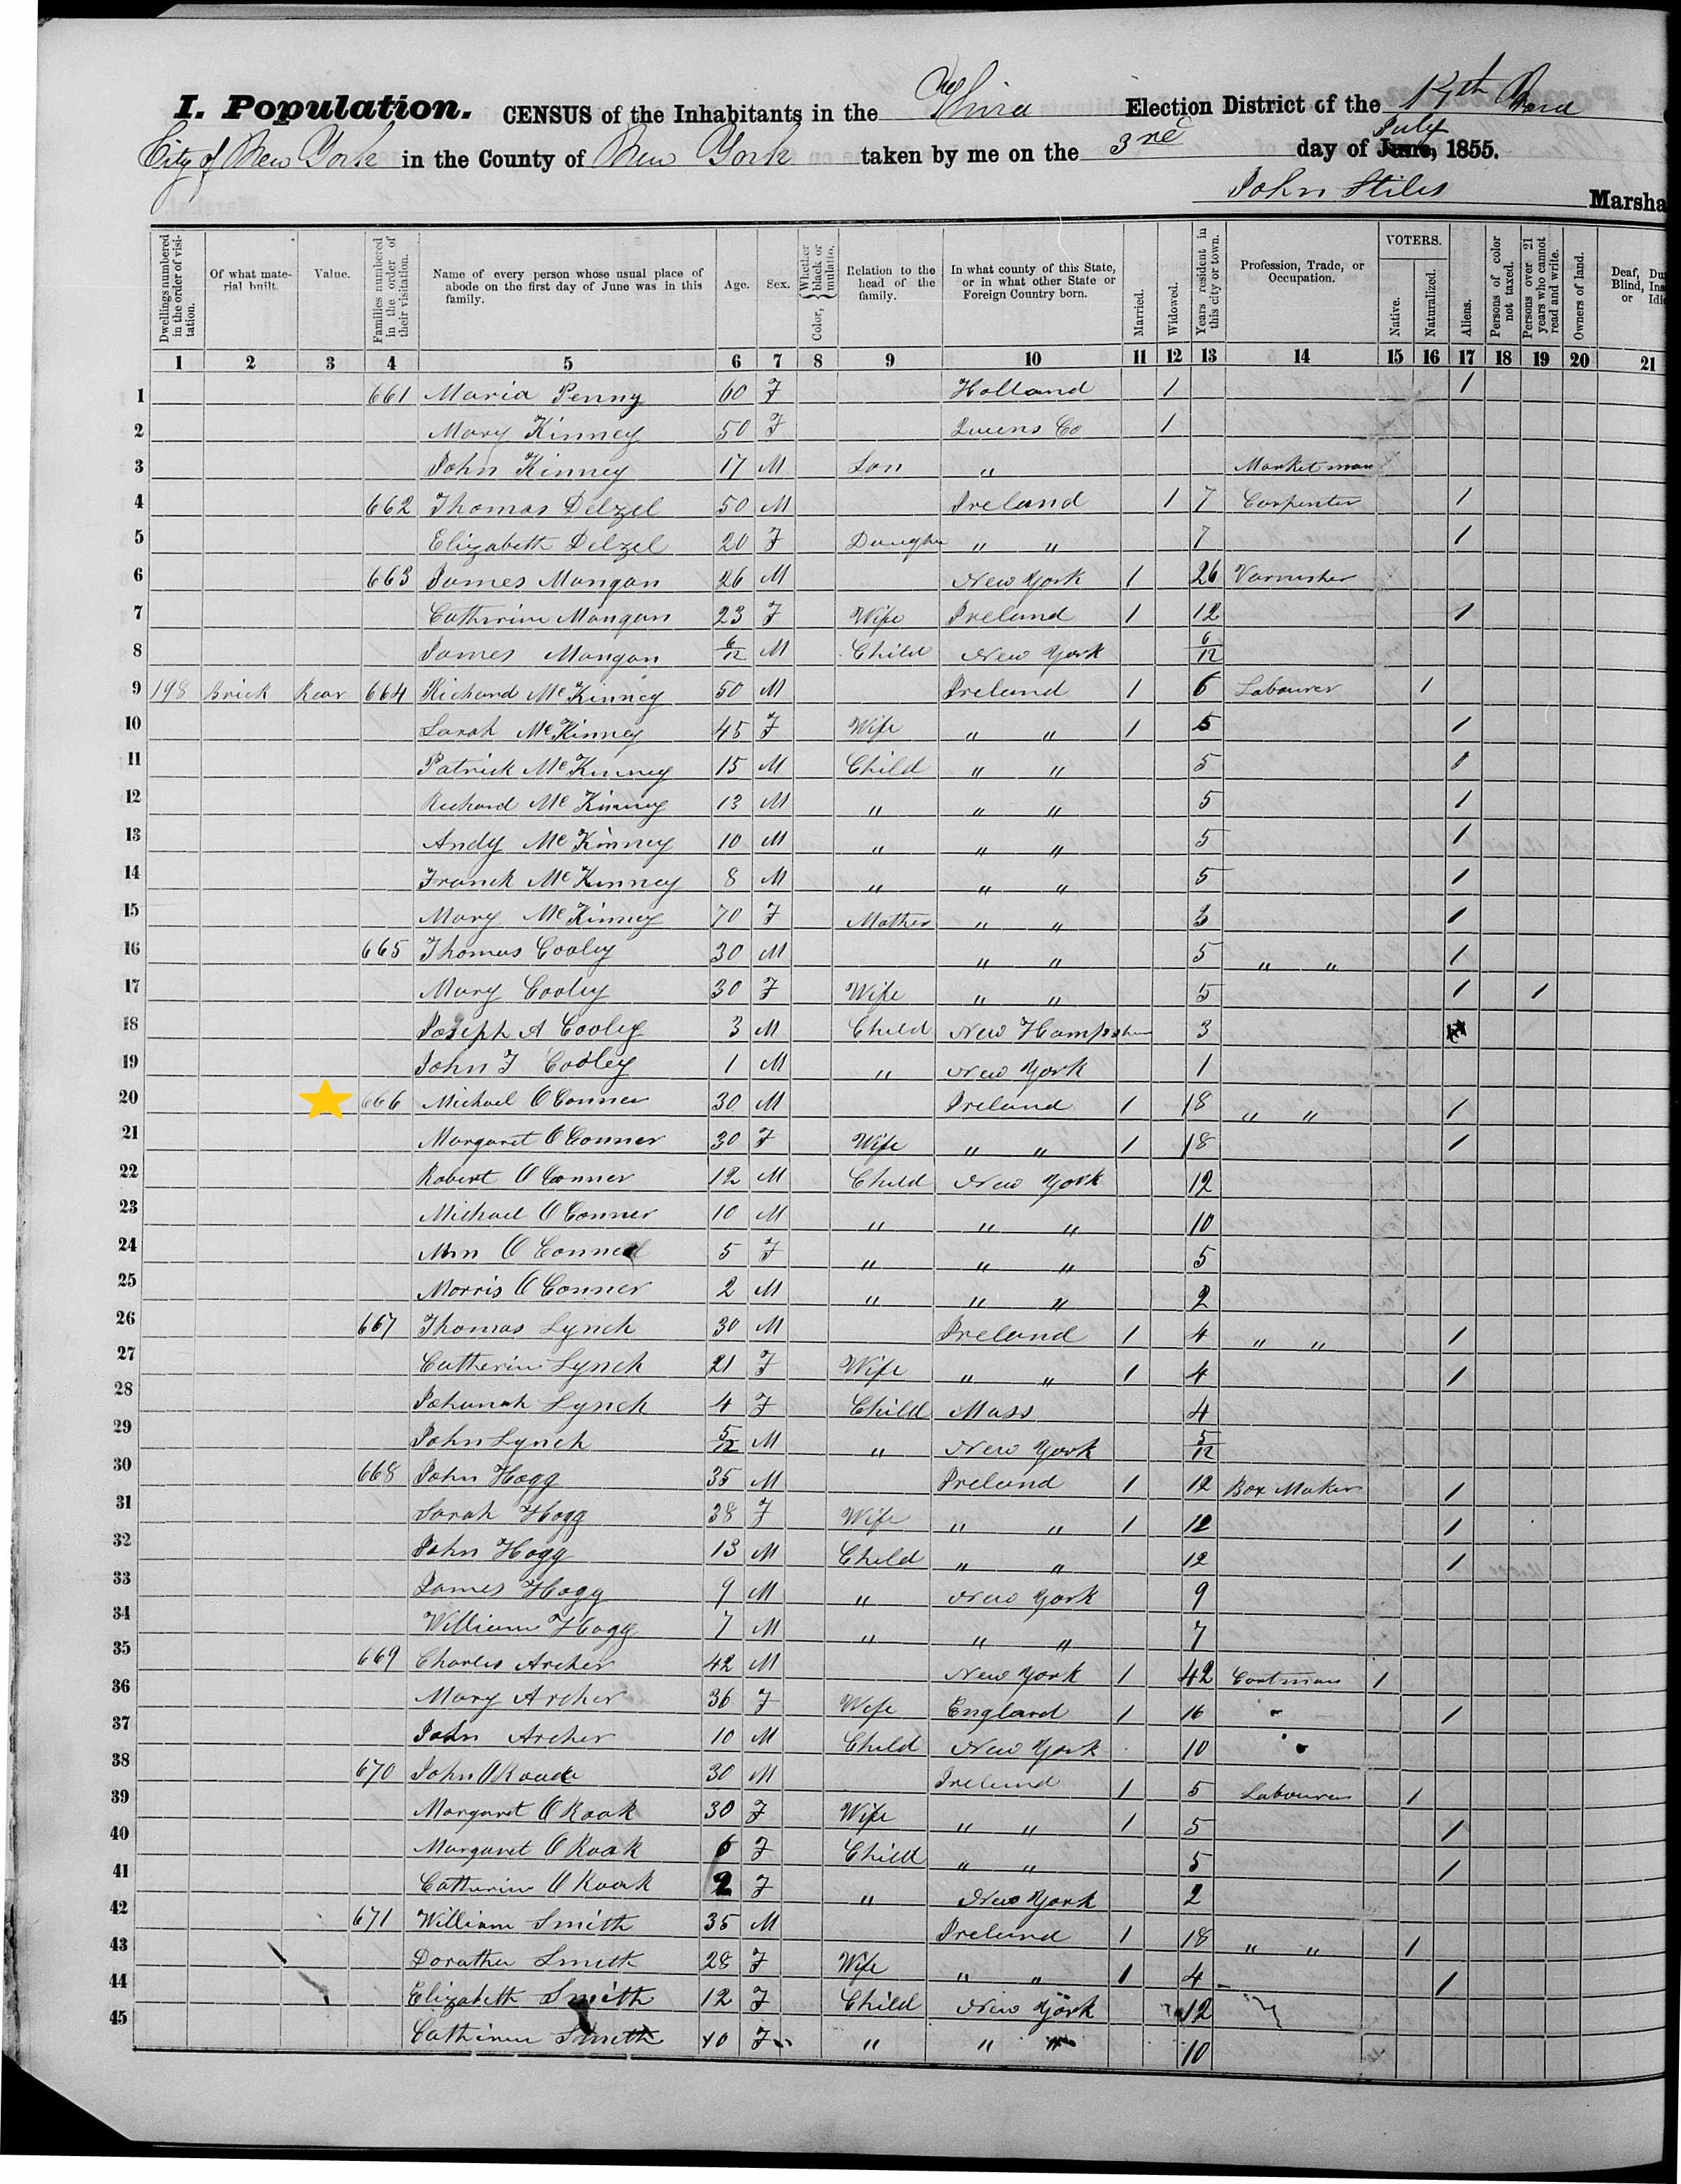 I. Population. CENSUS of the Inhabitants in the Third Election District of the 17th Ward
City of New York in the County of New York taken by me on the 3rd day of June, July 1855.
John Stiles Marsha
Dwellings numbered in the order of visitation. Of what material built. Value. Families numbered in the order of their visitation. Name of every person whose usual place of abode on the first day of June was in this family. Age. Sex. Color, Whether black or mulatto. Relation to the head of the family. In what county of this State, or in what other State or Foreign Country born. Married. Widowed. Years resident in this city or town. Profession, Trade, or Occupation. VOTERS. Native. Naturalized. Aliens. Persons of color not taxed. Persons over 21 years who cannot read and write. Owners of land. Deaf, Du Blind, Ins or Idi
1 2 3 4 5 6 7 8 9 10 11 12 13 14 15 16 17 18 19 20 21
1 661 Maria Penny 60 F Holland 1 1
2 Mary Kinney 50 F Queens Co 1
3 John Kinney 17 M Son " Market man
4 662 Thomas Delzel 50 M Ireland 1 7 Carpenter 1
5 Elizabeth Delzel 20 F Daughter " " 7 1
6 663 James Mangan 26 M New York 1 26 Varnisher
7 Catherine Mangan 23 F Wife Ireland 1 12 1
8 James Mangan 6/12 M Child New York 6/12
9 198 Brick Rear 664 Richard McKinney 50 M Ireland 1 6 Labourer 1
10 Sarah McKinney 45 F Wife " " 1 5 1
11 Patrick McKinney 15 M Child " " 5 1
12 Richard McKinney 13 M " " " 5 1
13 Andy McKinney 10 M " " " 5 1
14 Franck McKinney 8 M " " " 5 1
15 Mary McKinney 70 F Mother " " 3 1
16 665 Thomas Cooley 30 M " " 5 " " 1
17 Mary Cooley 30 F Wife " " 5 1 1
18 Joseph A Cooley 3 M Child New Hampshire 3
19 John F Cooley 1 M " New York 1
20 666 Michael O Conner 30 M Ireland 1 18 " " 1
21 Margaret O Conner 30 F Wife " " 1 18 1
22 Robert O Conner 12 M Child New York 12
23 Michael O Conner 10 M " " " 10
24 Ann O Conner 5 F " " " 5
25 Morris O Conner 2 M " " " 2
26 667 Thomas Lynch 30 M Ireland 1 4 " " 1
27 Catherine Lynch 21 F Wife " " 1 4 1
28 Johanah Lynch 4 F Child Mass 4
29 John Lynch 5/12 M " New York 5/12
30 668 John Hogg 35 M Ireland 1 12 Box Maker 1
31 Sarah Hogg 38 F Wife " " 1 12 1
32 John Hogg 13 M Child " " 12 1
33 James Hogg 9 M " New York 9
34 William Hogg 7 M " " " 7
35 669 Charles Archer 42 M New York 1 42 Cartman 1
36 Mary Archer 36 F Wife England 1 16 1
37 John Archer 10 M Child New York 10
38 670 John O 30 M Ireland 1 5 Labourer 1
39 Margaret O Roak 30 F Wife " " 1 5 1
40 Margaret O Roak 6 F Child " " 5 1
41 Catherine O Roak 2 F " New York 2
42 671 William Smith 35 M Ireland 1 18 " " 1
43 Dorathea Smith 28 F Wife " " 1 4 1
44 Elizabeth Smith 12 F Child New York 12
45 Catherine Smith 10 F " " " 10